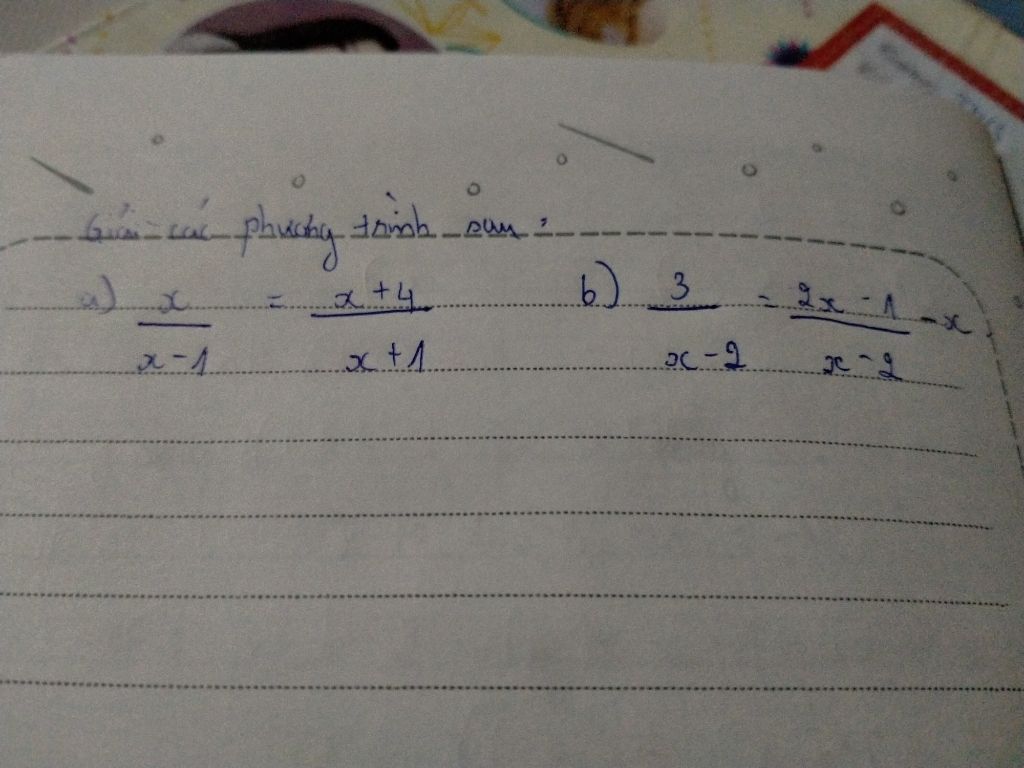 Giải các phương trình sau :
a) x/(x-1) = (x+4)/(x+1) b) 3/(x-2) = (2x-1)/(x-2) - x